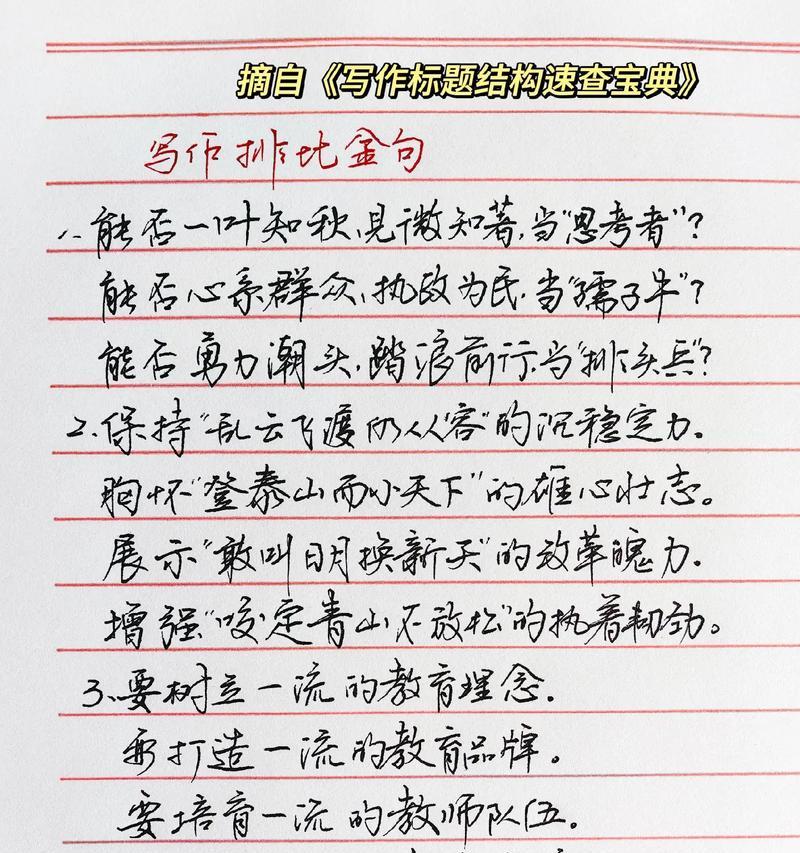 摘自《写作标题结构速查宝典》
写作排比金句
1、能否一叶知秋、见微知著,当"思考者"?
能否心系群众、执政为民,当"孺子牛"?
能否勇力潮头、踏浪前行,当"排头兵"?
2、保持"乱云飞渡仍从容"的沉稳定力。
胸怀"登泰山而小天下"的雄心壮志。
展示"敢叫日月换新天"的改革魄力.
增强"咬定青山不放松"的执着韧劲。
3、要树立一流的教育理念.
要打造一流的教育品牌。
要培育一流的教师队伍。